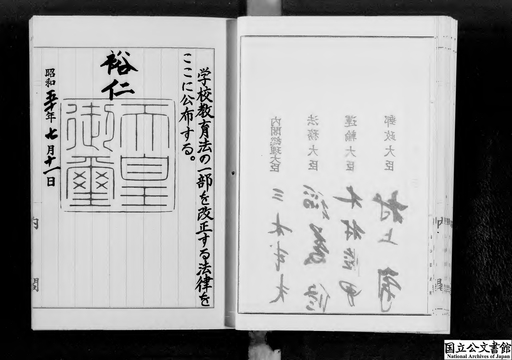 学校教育法の一部を改正する法律を
ここに公布する。
裕仁
天皇
御璽
昭和五十年七月十一日
内閣
郵政大臣 村上勇
運輸大臣 木村睦男
法務大臣 稻葉修
内閣総理大臣 三木武夫
国立公文書館
National Archives of Japan